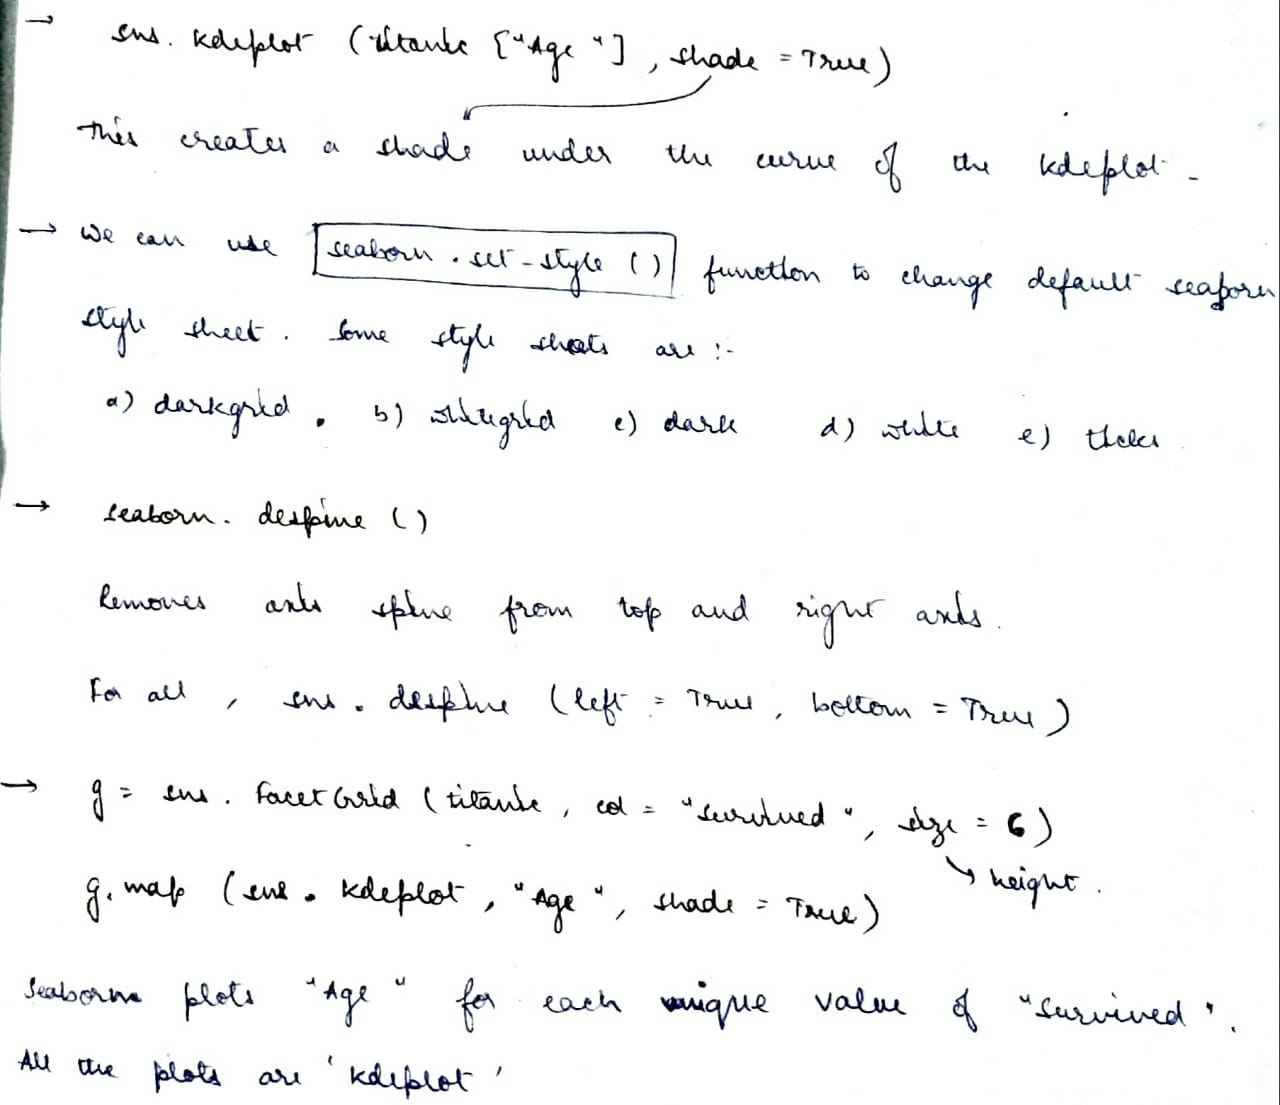 → sns. kdeplot (titanic ["Age"], shade = True)
This creates a shade under the curve of the kdeplot.
→ We can use seaborn.set-style () function to change default seaborn
style sheet. Some style sheets are :-
a) darkgrid. b) whitegrid c) dark d) white e) ticks
→ seaborn. despine ()
Removes axis spine from top and right axis.
For all, sns. despine (left = True, bottom = True)
→ g = sns. FacetGrid (titanic, col = "survived", size = 6)
↘ height.
g. map (sns. kdeplot, "Age", shade = True)
Seaborn plots "Age" for each unique value of "survived".
All the plots are 'kdeplot'